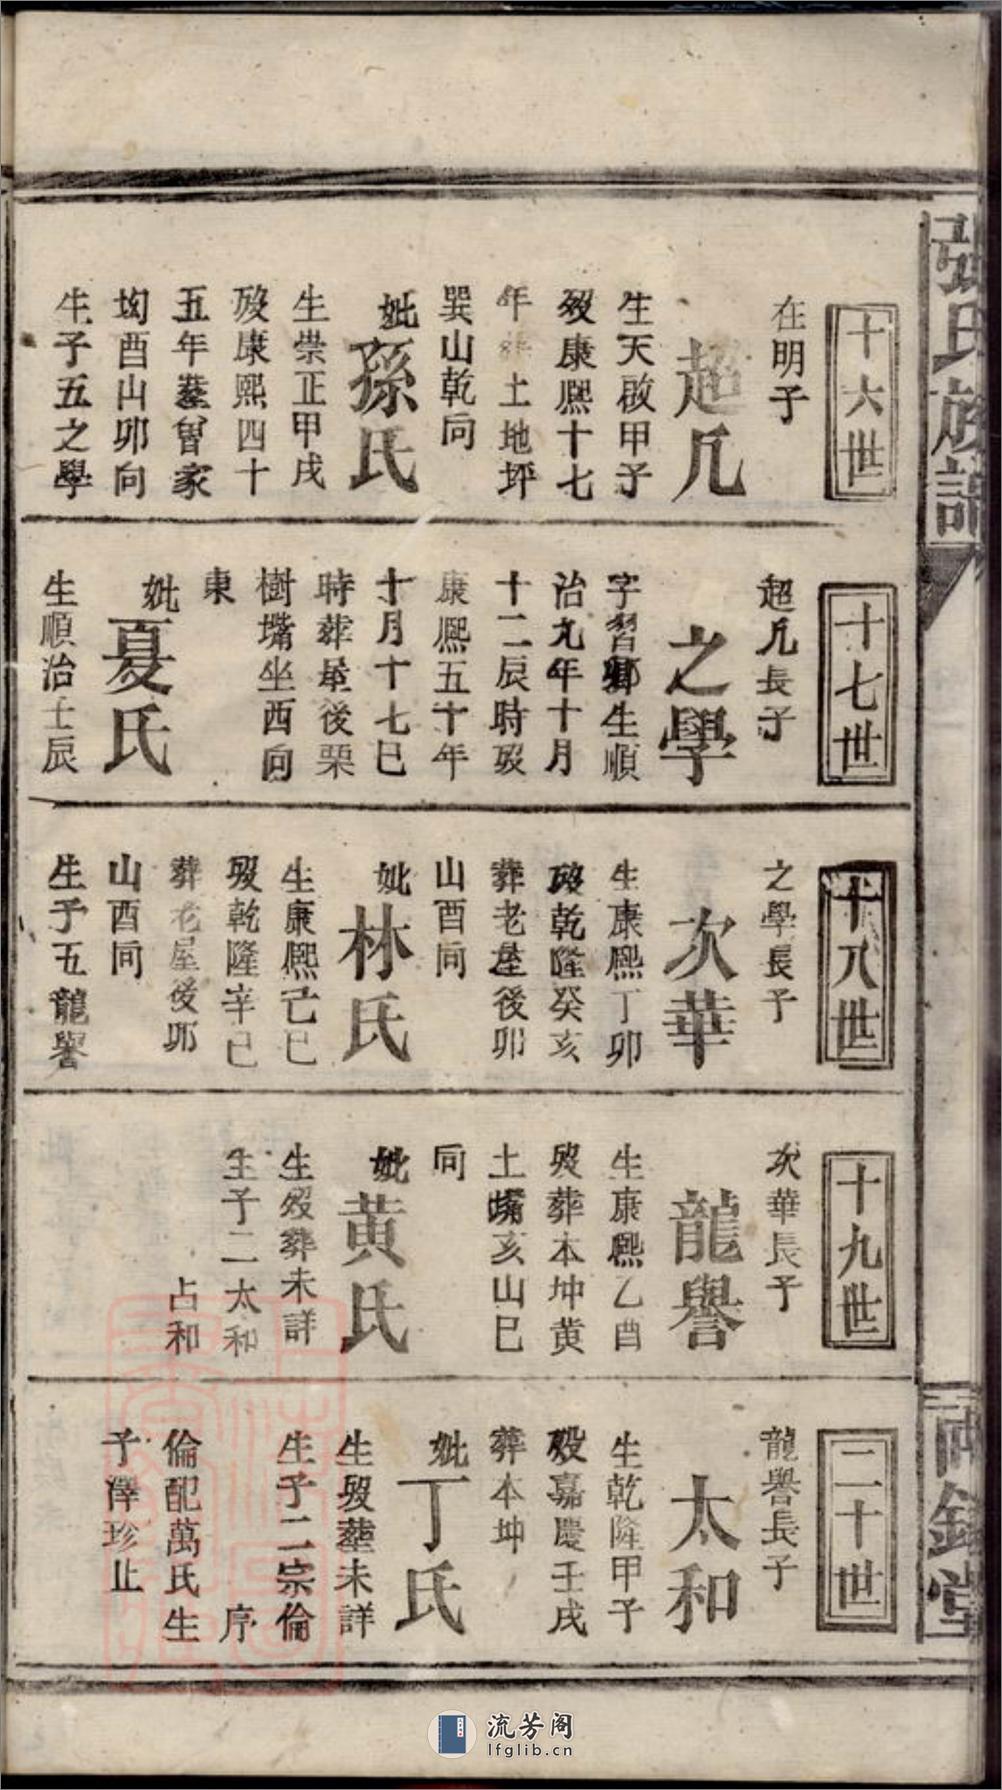 張氏族譜
十六世
在明子
超凡
生天啟甲子
歿康熙十七
年葬土地坪
巽山乾向
妣孫氏
生崇正甲戌
歿康熙四十
五年塟曾家
坳酉山卯向
生子五之學
十七世
超凡長子
之學
字習鄒生順
治九年十月
十二辰時歿
康熙五十年
十月十七巳
時葬屋後栗
樹墧坐西向
東
妣夏氏
生順治壬辰
十八世
之學長子
次華
生康熙丁卯
歿乾隆癸亥
葬老屋後卯
山酉向
妣林氏
生康熙己巳
歿乾隆辛巳
葬老屋後卯
山酉向
生子五龍譽
十九世
次華長子
龍譽
生康熙乙酉
歿葬本坤黄
土嘴亥山巳
向
妣黄氏
生歿葬未詳
生子二太和
占和
二十世
龍譽長子
太和
生乾隆甲子
歿嘉慶壬戌
葬本坤
妣丁氏
生歿塟未詳
生子二宗倫
序
倫配萬氏生
子澤珍止
堂
流芳阁
lfglib.cn